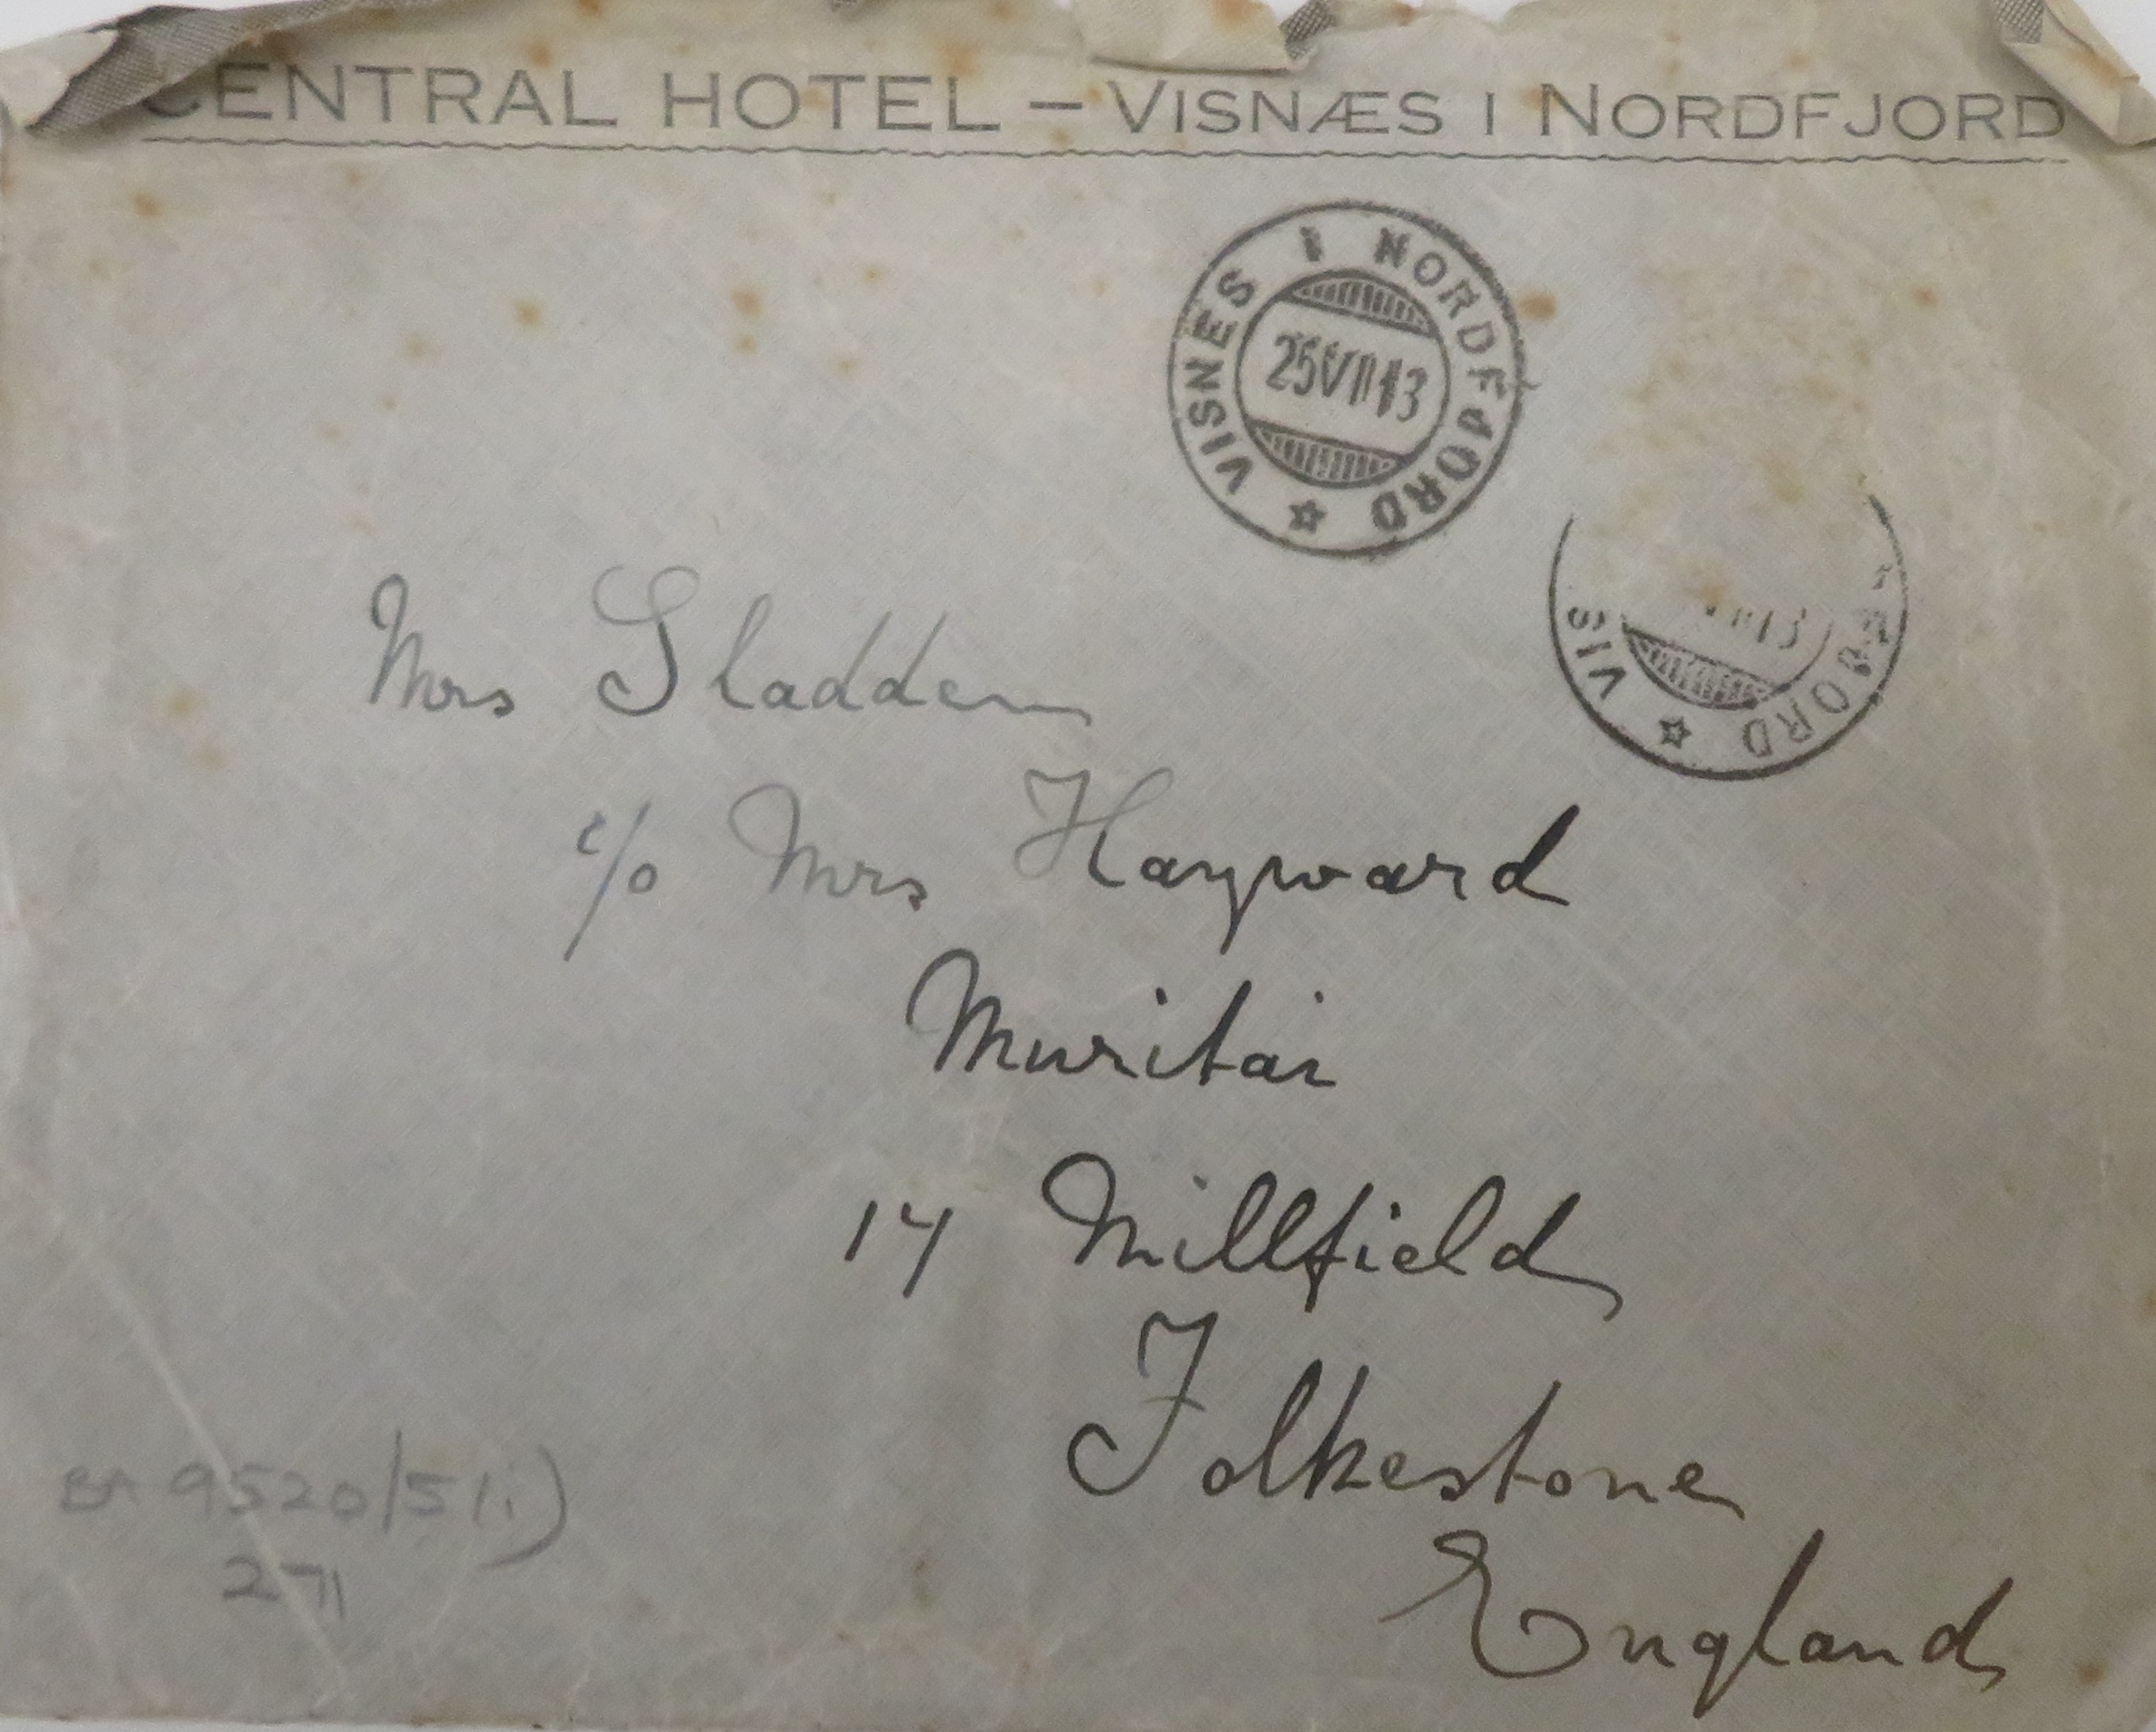 CENTRAL HOTEL – VISNÆS I NORDFJORD
VISNES I NORDFJORD
25 VII 13
VIS ORD
VII 13
Mrs Sladden
c/o Mrs Hayward
Muritai
14 Millfield
Folkestone
England
9520/51i)
271